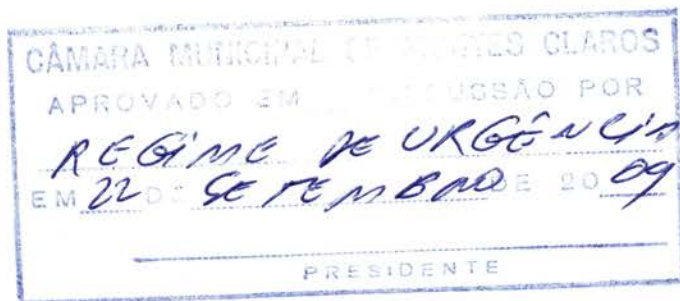 CÂMARA MUNICIPAL DE MONTES CLAROS
APROVADO EM DISCUSSÃO POR
REGIME DE URGÊNCIA
EM 22 DE SETEMBRO DE 2009
PRESIDENTE